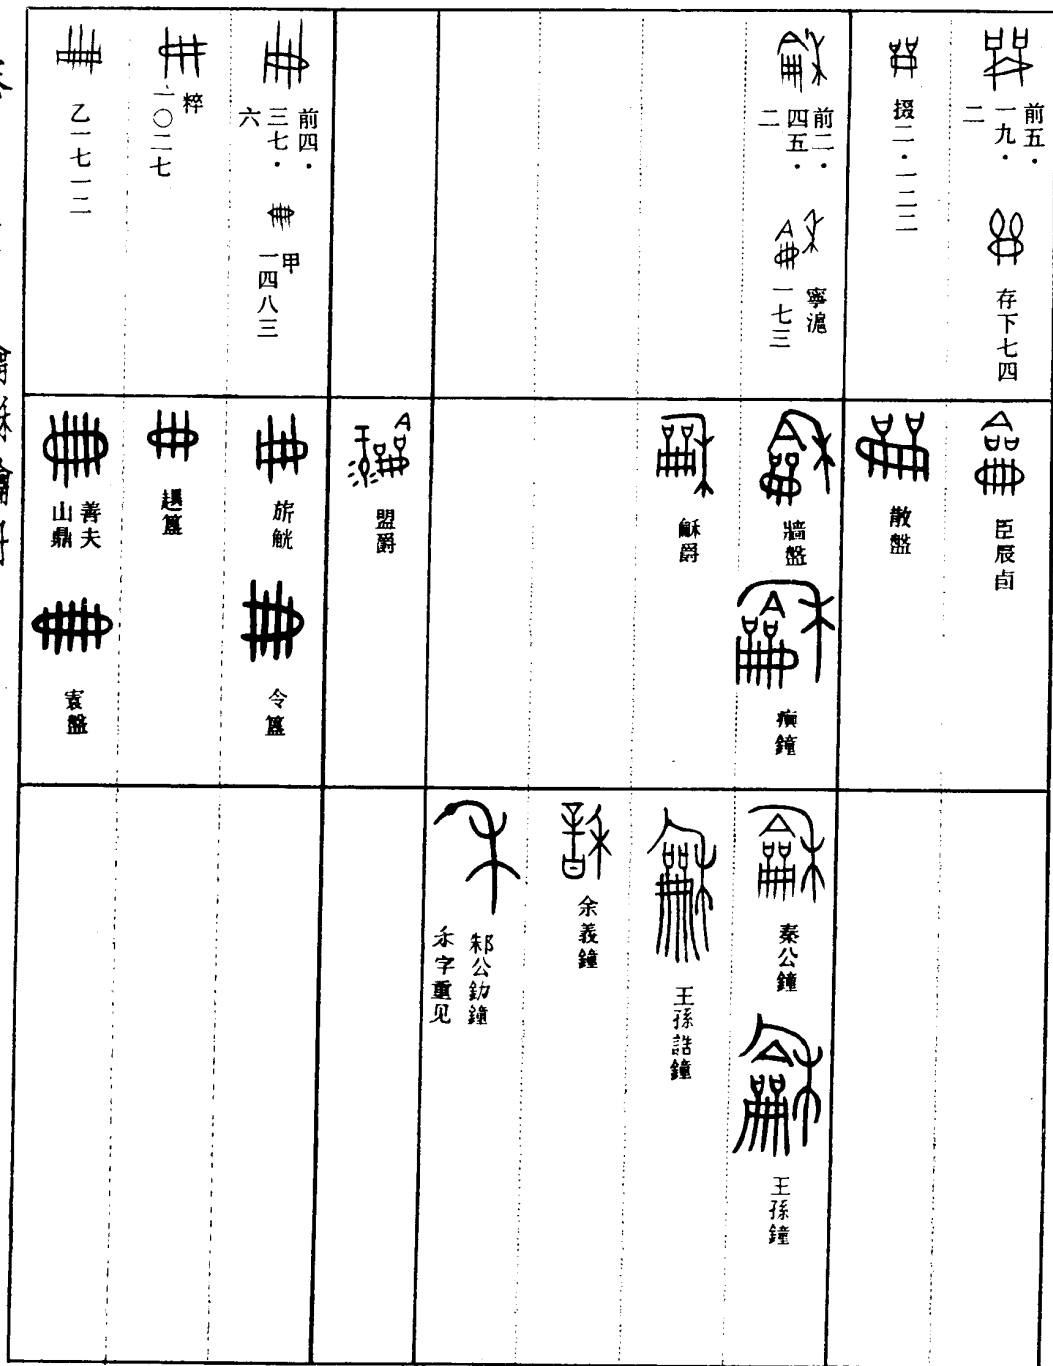 前五・
一九・
二
存下七四
掇二・一二二
前二・
四五・
二
寧滬
一七三
前四・
三七・
六
甲
一四八三
粹
一〇二七
乙一七一二
臣辰卣
散盤
牆盤
𤼈鐘
龢爵
盟爵
旂觥
令簋
趞簋
善夫
山鼎
㝨盤
秦公鐘
王孫鐘
王孫誥鐘
余義鐘
邾公釛鐘
禾字重见